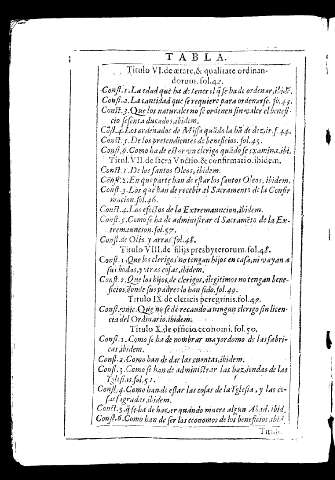 TABLA.
Titulo VI. de ætate, & qualitate ordinan-
dorum. fol. 42.
Const. 1. La edad que ha de tener el q̃ se ha de ordenar, ibidẽ.
Const. 2. La cantidad que se requiere para ordenarse. fo. 43.
Const. 3. Que los naturales no se ordenen sin valer el benefi-
cio sesenta ducados, ibidem.
Cõst. 4. Los ordenados de Missa quãdo la hã de dezir. f. 44.
Const. 5. De los pretendientes de beneficios. fol. 45.
Const. 6. Como ha de estar un clerigo quãdo se examina. ibi.
Titul. VII. de sacra Vnctio. & confirmatio. ibidem.
Const. 1. De los santos Oleos, ibidem.
Const. 2. En que parte han de estar los santos Oleos. ibidem.
Const. 3. Los que han de recebir el Sacramento de la Confir
macion. fol. 46.
Const. 4. Los efectos de la Extremauncion, ibidem.
Const. 5. Como se ha de administrar el Sacramẽto de la Ex-
tremauncion. fol. 47.
Const. de Otis y arras fol. 48.
Titulo VIII. de filijs presbyterorum. fol. 48.
Const. 1. Que los clerigos no tengan hijos en casa, ni vayan a
sus bodas, y otras cosas, ibidem.
Const. 2. Que los hijos de clerigos, illegitimos no tengan bene-
ficios donde sus padres lo han sido. fol. 49.
Titulo IX. de clericis peregrinis. fol. 49.
Const. unic. Que no se dè recaudo a ningun clerigo sin licen-
cia del Ordinario. ibidem.
Titulo X. de officio œconomi. fol. 50.
Const. 1. Como se ha de nombrar mayordomo de las fabri-
cas, ibidem.
Const. 2. Como han de dar las cuentas, ibidem.
Const. 3. Como se han de administrar las haziendas de las
Iglesias. fol. 51.
Const. 4. Como han de estar las cosas de la Iglesia, y las co-
sas sagradas, ibidem.
Const. 5. q̃ se ha de hacer quãdo muere algun Abad. ibid.
Const. 6. Como han de ser los economos de los beneficios. ibid.